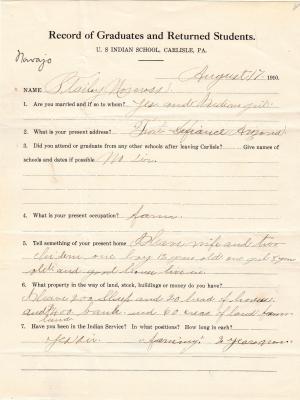 Record of Graduates and Returned Students.
U. S INDIAN SCHOOL, CARLISLE, PA.
Navajo
August 17 1910.
NAME Stailey Norcross
1. Are you married and if so to whom? Yes and Indian girl
2. What is your present address? Fort Defiance
3. Did you attend or graduate from any other schools after leaving Carlisle? Give names of
schools and dates if possible. No sir.
4. What is your present occupation? farm
5. Tell something of your present home I have wife and two
one boy years old one girl 8 year
old and good house live in.
6. What property in the way of land, stock, buildings or money do you have?
I have 200 sheep and 20 head of horses
and bank and 60 of land
land
7. Have you been in the Indian Service? In what positions? How long in each?
Yes sir farming 2 years